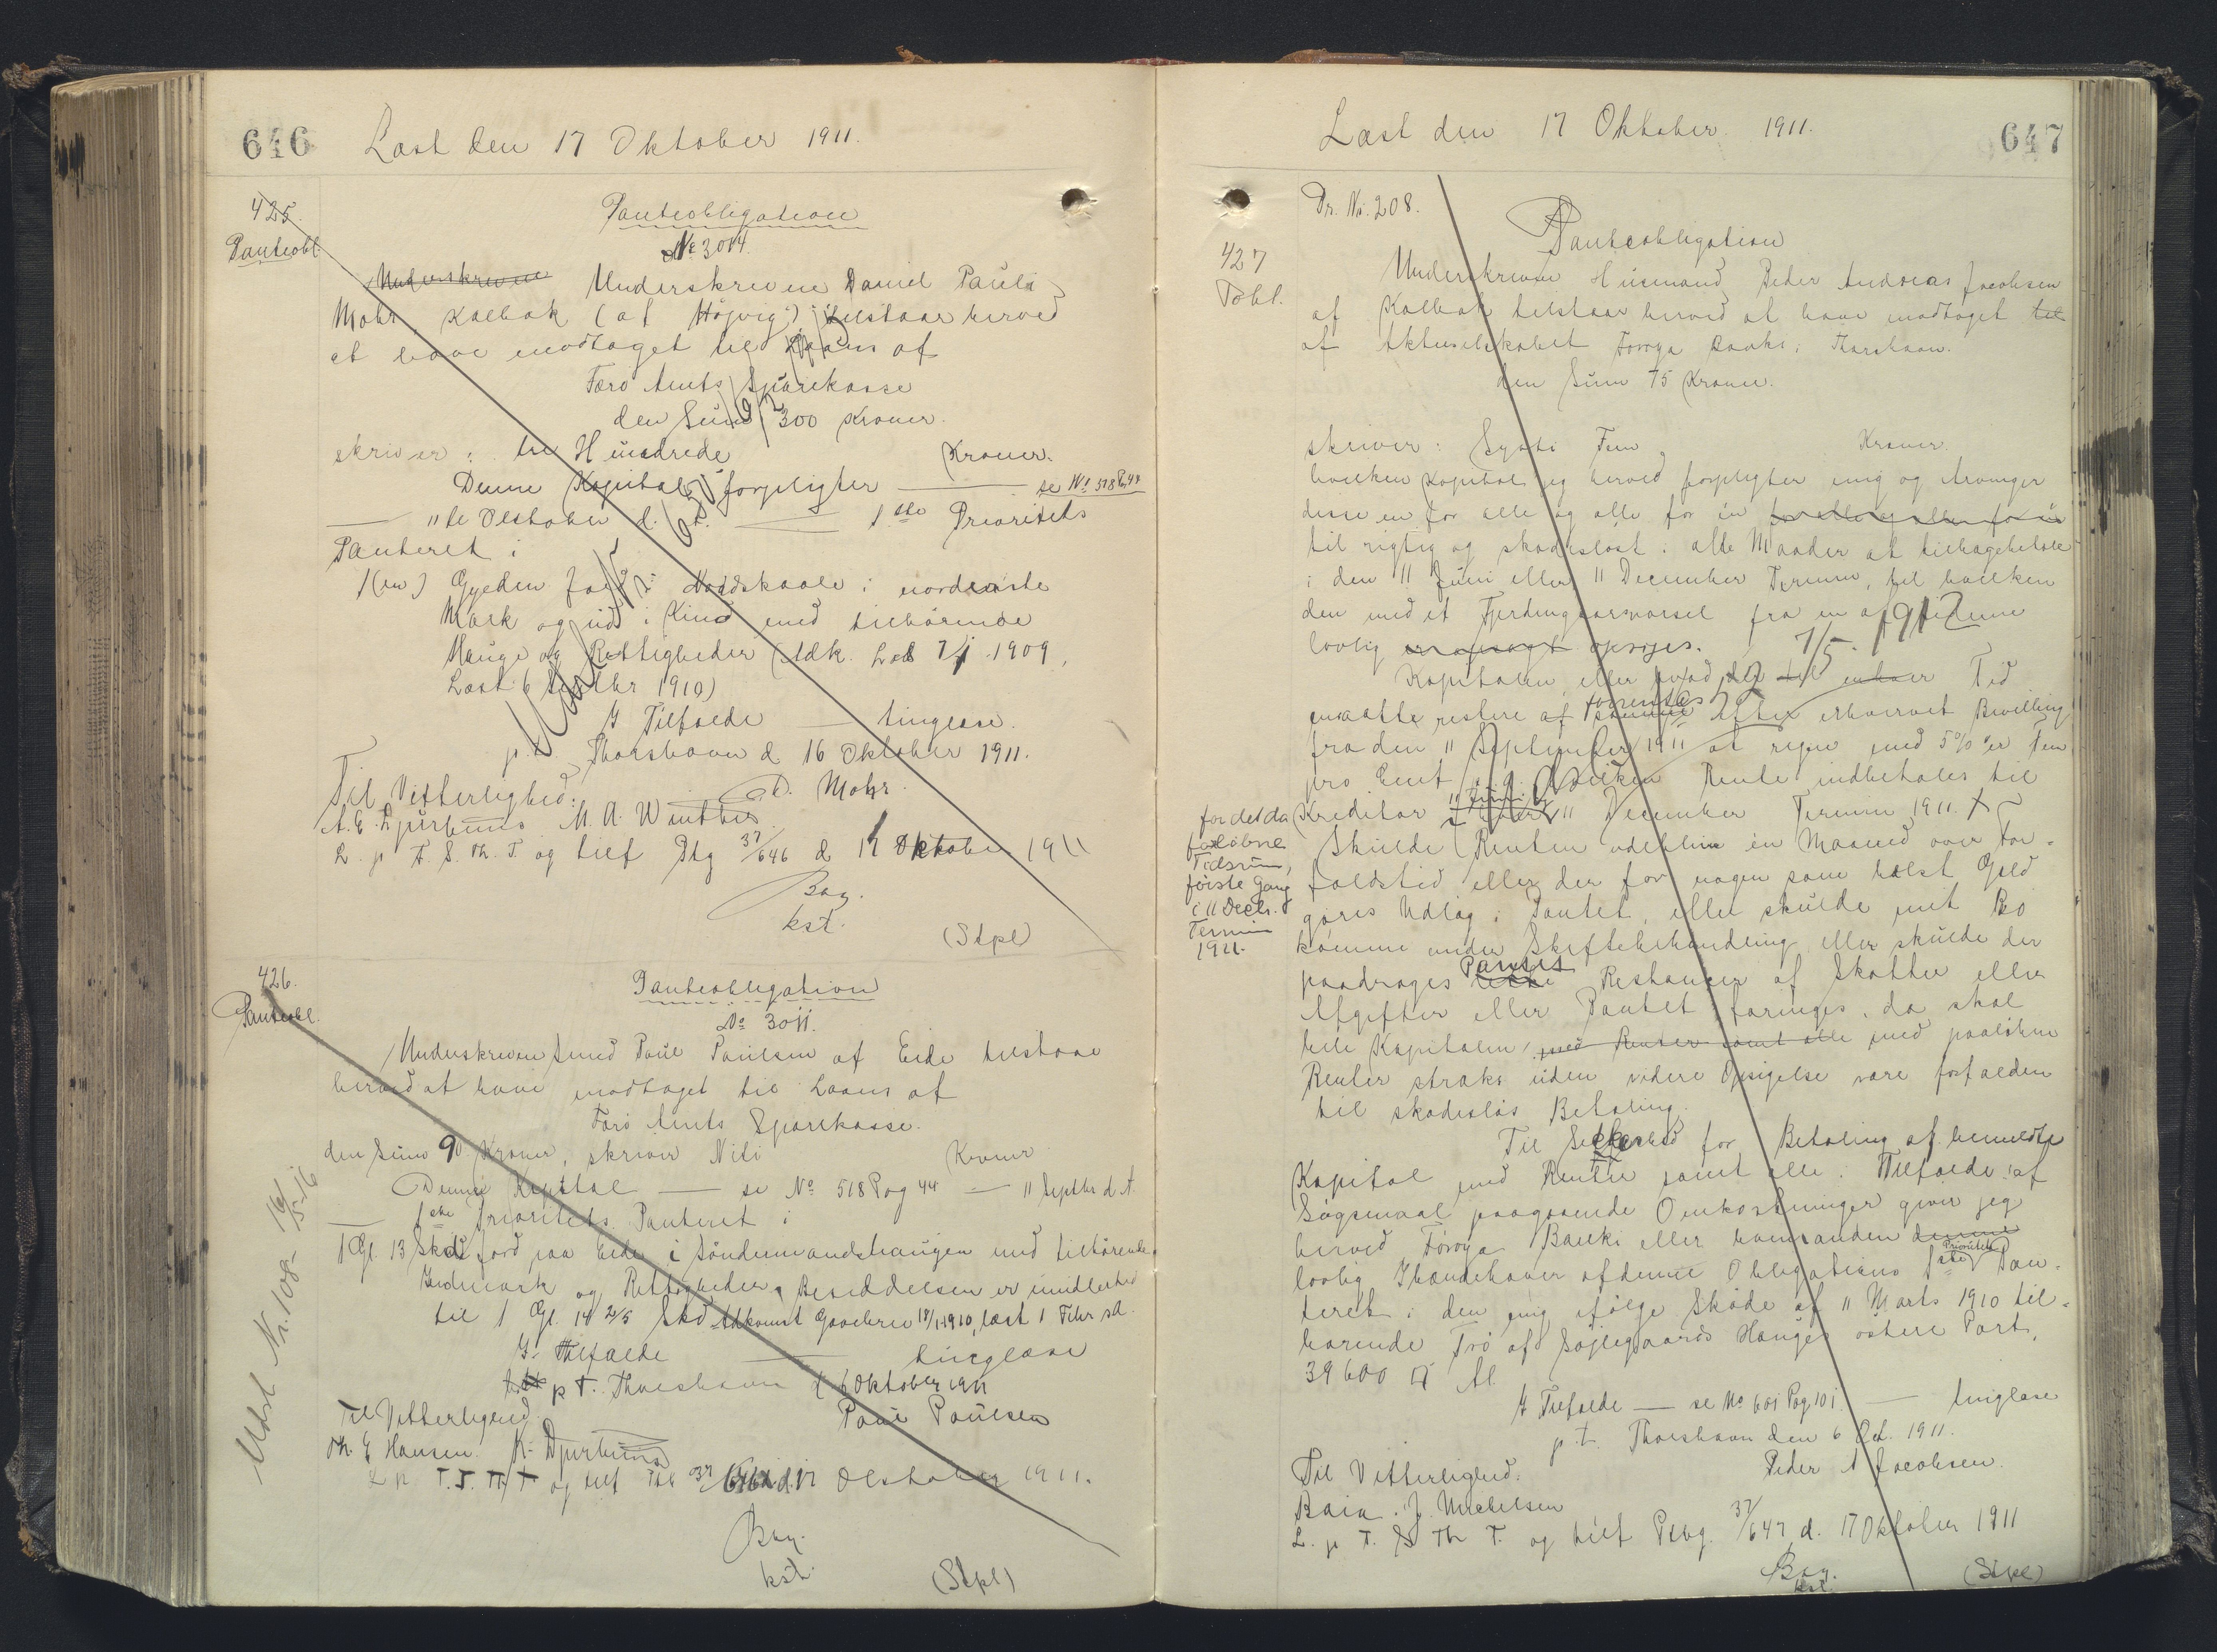 646
Læst den 17 Oktober 1911.
425.
Panteobl.
Panteobligation
No 3014.
Underskrevne Underskrevne Daniel Pauli
Mohr, Kalbak (af Højvig) tilstaar herved
at have modtaget til Laans af
Færø Amts Sparekasse
den Sum 300 Kroner.
skriver: tre Hundrede Kroner.
Denne Kapital forpligter — se No 518 P. 44
— 11te Oktober d. A. — 1ste Prioritets
Panteret i
1 (en) Gylden Jord i Nordskaale i nordenste
Mark og ud i Kind med tilhørende
Hauge og Rettigheder (Adk. 1909,
Læst 6 1910)
I Tilfælde — tinglæse.
p.t. Thorshavn d. 16 Oktober 1911.
Til Vitterlighed: D. Mohr.
A. E. Djurhuus M. A. Winther
L. p. T. S. Th. T. og tilf Ptg 37/646 d 17 Oktober 1911
Bay.
kst.
(Stpl)
426.
Panteobl.
Panteobligation
No 3011.
Underskrevne Smed Poul Poulsen af Eide tilstaar
herved at have modtaget til Laans af
Færø Amts Sparekasse.
den Sum 90 Kroner, skriver Niti Kroner
Denne Kapital — se No 518 Pag 44 — 11 Septbr d. A.
1ste Prioritets Panteret i
1 Gl. 13 Skd Jord paa Eide i Søndermandshaugen med tilhørende
Indmark og Rettigheder, Besiddelsen er imidlertid
til 1 Gl. 14 2/5 Skd Adkomst Gavebrev 18/1 1910, læst 1 Febr sd.
I Tilfælde — tinglæse
p.t. Thorshavn d. 6 Oktober 1911
Til Vitterlighed. Poul Poulsen
Th. E Hansen. K. Djurhuus
L p. T. S. Th. T og tilf 37/646 d. 17 Oktober 1911.
Bay.
kst.
(Stpl)
Udst Nr. 108- 16/5-16
Læst den 17 Oktober 1911.
647
Pr. Nr. 208.
427
Pobl.
Panteobligation
Underskrevne Husmand Peder Andreas Jacobsen
af Kalbak tilstaar herved at have modtaget til
af Aktieselskabet Føroya Banki, Thorshavn.
den Sum 75 Kroner.
skriver: Sytti Fem Kroner.
hvilken Kapital jeg herved forpligter mig og Arvinger
disse en for alle og alle for én for alle og alle for én
til rigtig og skadesløst i alle Maader at tilbagebetale
i den 11 Juni eller 11 December Termin, til hvilken
den med et Fjerdingaarsvarsel fra en af Siderne
lovlig opsiges.
Kapitalen eller hvad der til enhver Tid
maatte restere af samme forrentes efter erhvervet Bevilling
fra den 11 September 1911 at regne med 5% er Fem
pro Cent p. a. hvilken Rente indbetales til
Kreditor i hver 11 Juni & 11 December Termin 1911. +
for det da
forløbne
Tidsrum,
første Gang
i 11 Decbr.
Termin
1911.
Skulde Renten udeblive én Maaned over For-
faldstid eller der for nogen som helst Gæld
gøres Udlæg i Pantet, eller skulde mit Bo
komme under Skiftebehandling eller skulde der
paadrages Pantet Restancer af Skatter eller
Afgifter eller Pantet foringes, da skal
hele Kapitalen, med Renter samt alle med paaløbne
Renter straks uden videre Opsigelse være forfalden
til skadesløs Betaling.
Til Sikkerhed for Betaling af bemeldte
Kapital med Renter samt alle i Tilfælde af
Søgsmaal paagaaende Omkostninger giver jeg
herved Føroya Banki eller hvem anden denne
lovlig Ihændehaver af denne Obligations 1ste Prioritets Pan-
teret i den mig ifølge Skøde af 11 Marts 1910 til-
hørende Trø af Søjlegaards Hauges østere Part,
39600 □ Al.
I Tilfælde — se No 601 Pag 101. — tinglæse
p.t. Thorshavn den 6 Oct. 1911.
Til Vitterlighed. Peder A Jacobsen.
J. Michelsen
L. p T. S Th T. og tilf Ptbg. 37/647 d. 17 Oktober 1911
Bay.
kst.
(Stpl)